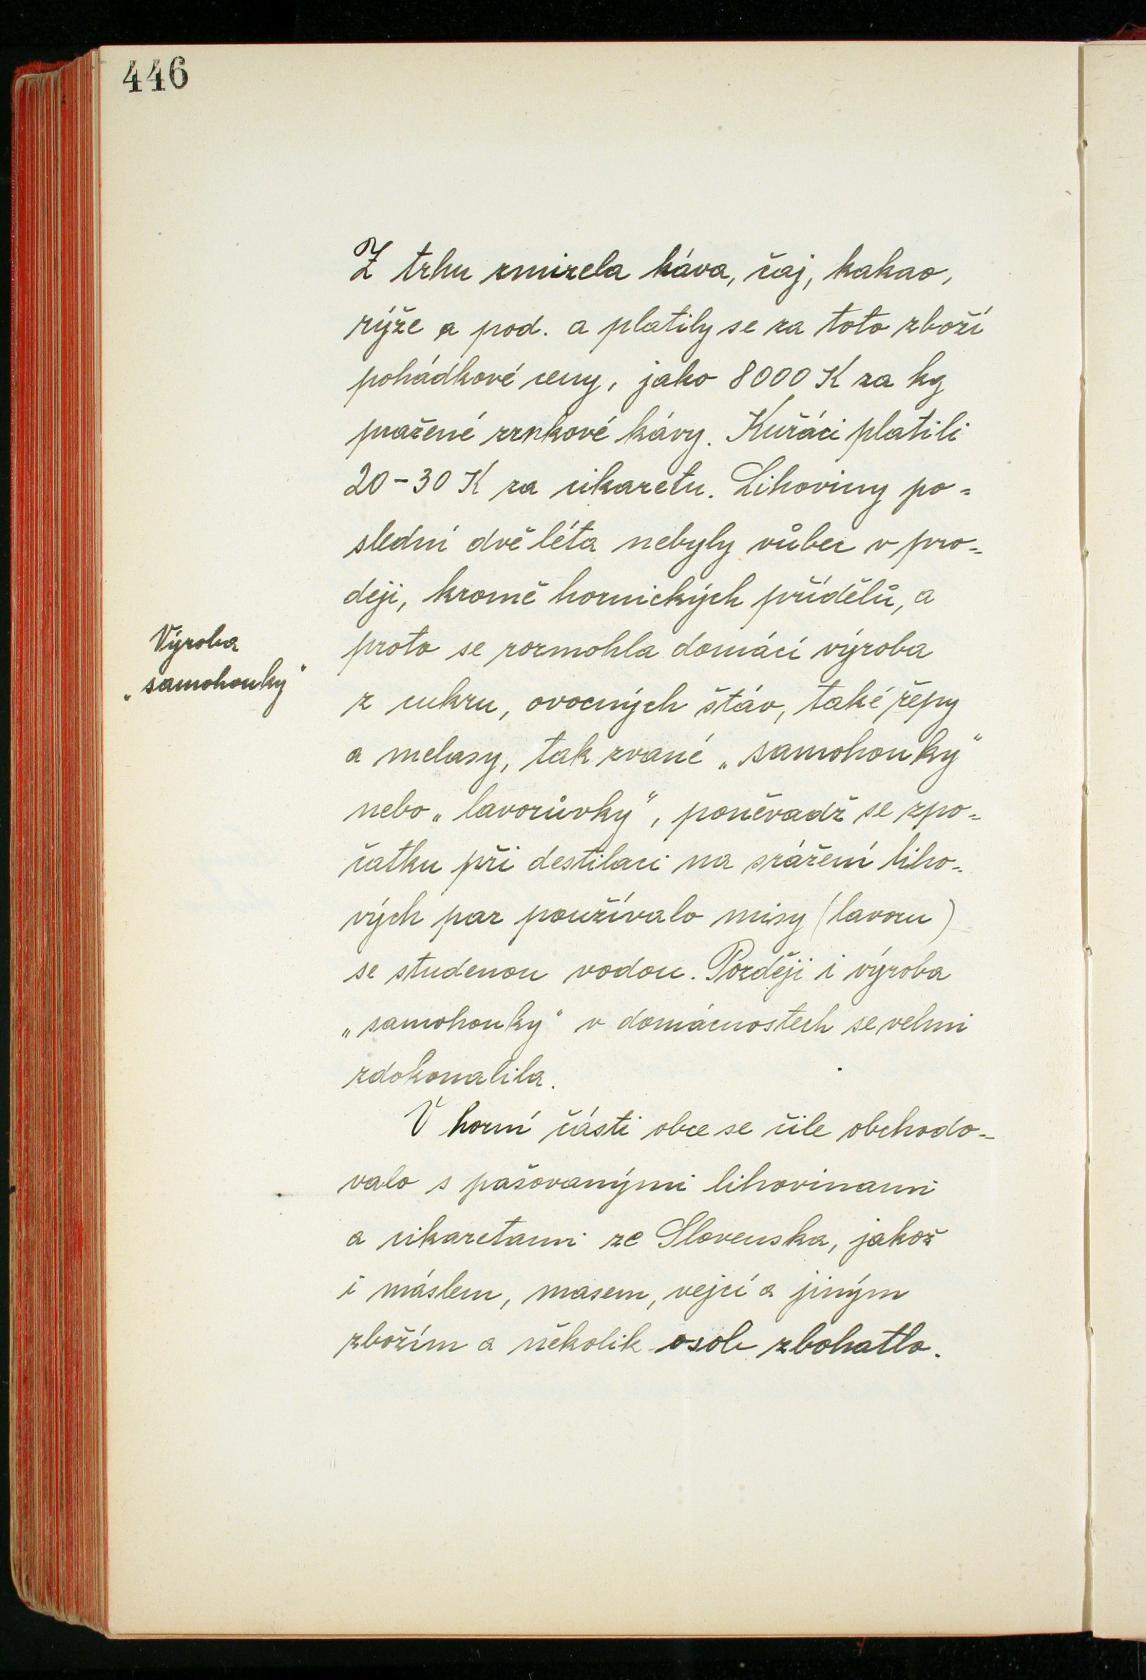 446
Z trhu zmizela káva, čaj, kakao,
rýže a pod. a platily se za toto zboží
pohádkové ceny, jako 8000 K za kg
pražené zrnkové kávy. Kuřáci platili
20-30 K za cikaretu. Lihoviny po-
slední dvě léta nebyly vůbec v pro-
deji, kromě hornických přídělů, a
Výroba
„samohonky"
proto se rozmohla domácí výroba
z cukru, ovocných štáv, také řepy
a melasy, tak zvané „samohonky"
nebo „lavorůvky", poněvadž se zpo-
čatku při destilaci na srážení liho-
vých par používalo mísy (lavoru)
se studenou vodou. Později i výroba
„samohonky" v domácnostech se velmi
zdokonalila.
V horní části obce se čile obchodo-
valo s pašovanými lihovinami
a cikaretami ze Slovenska, jakož
i máslem, masem, vejci a jiným
zbožím a několik osob zbohatlo.